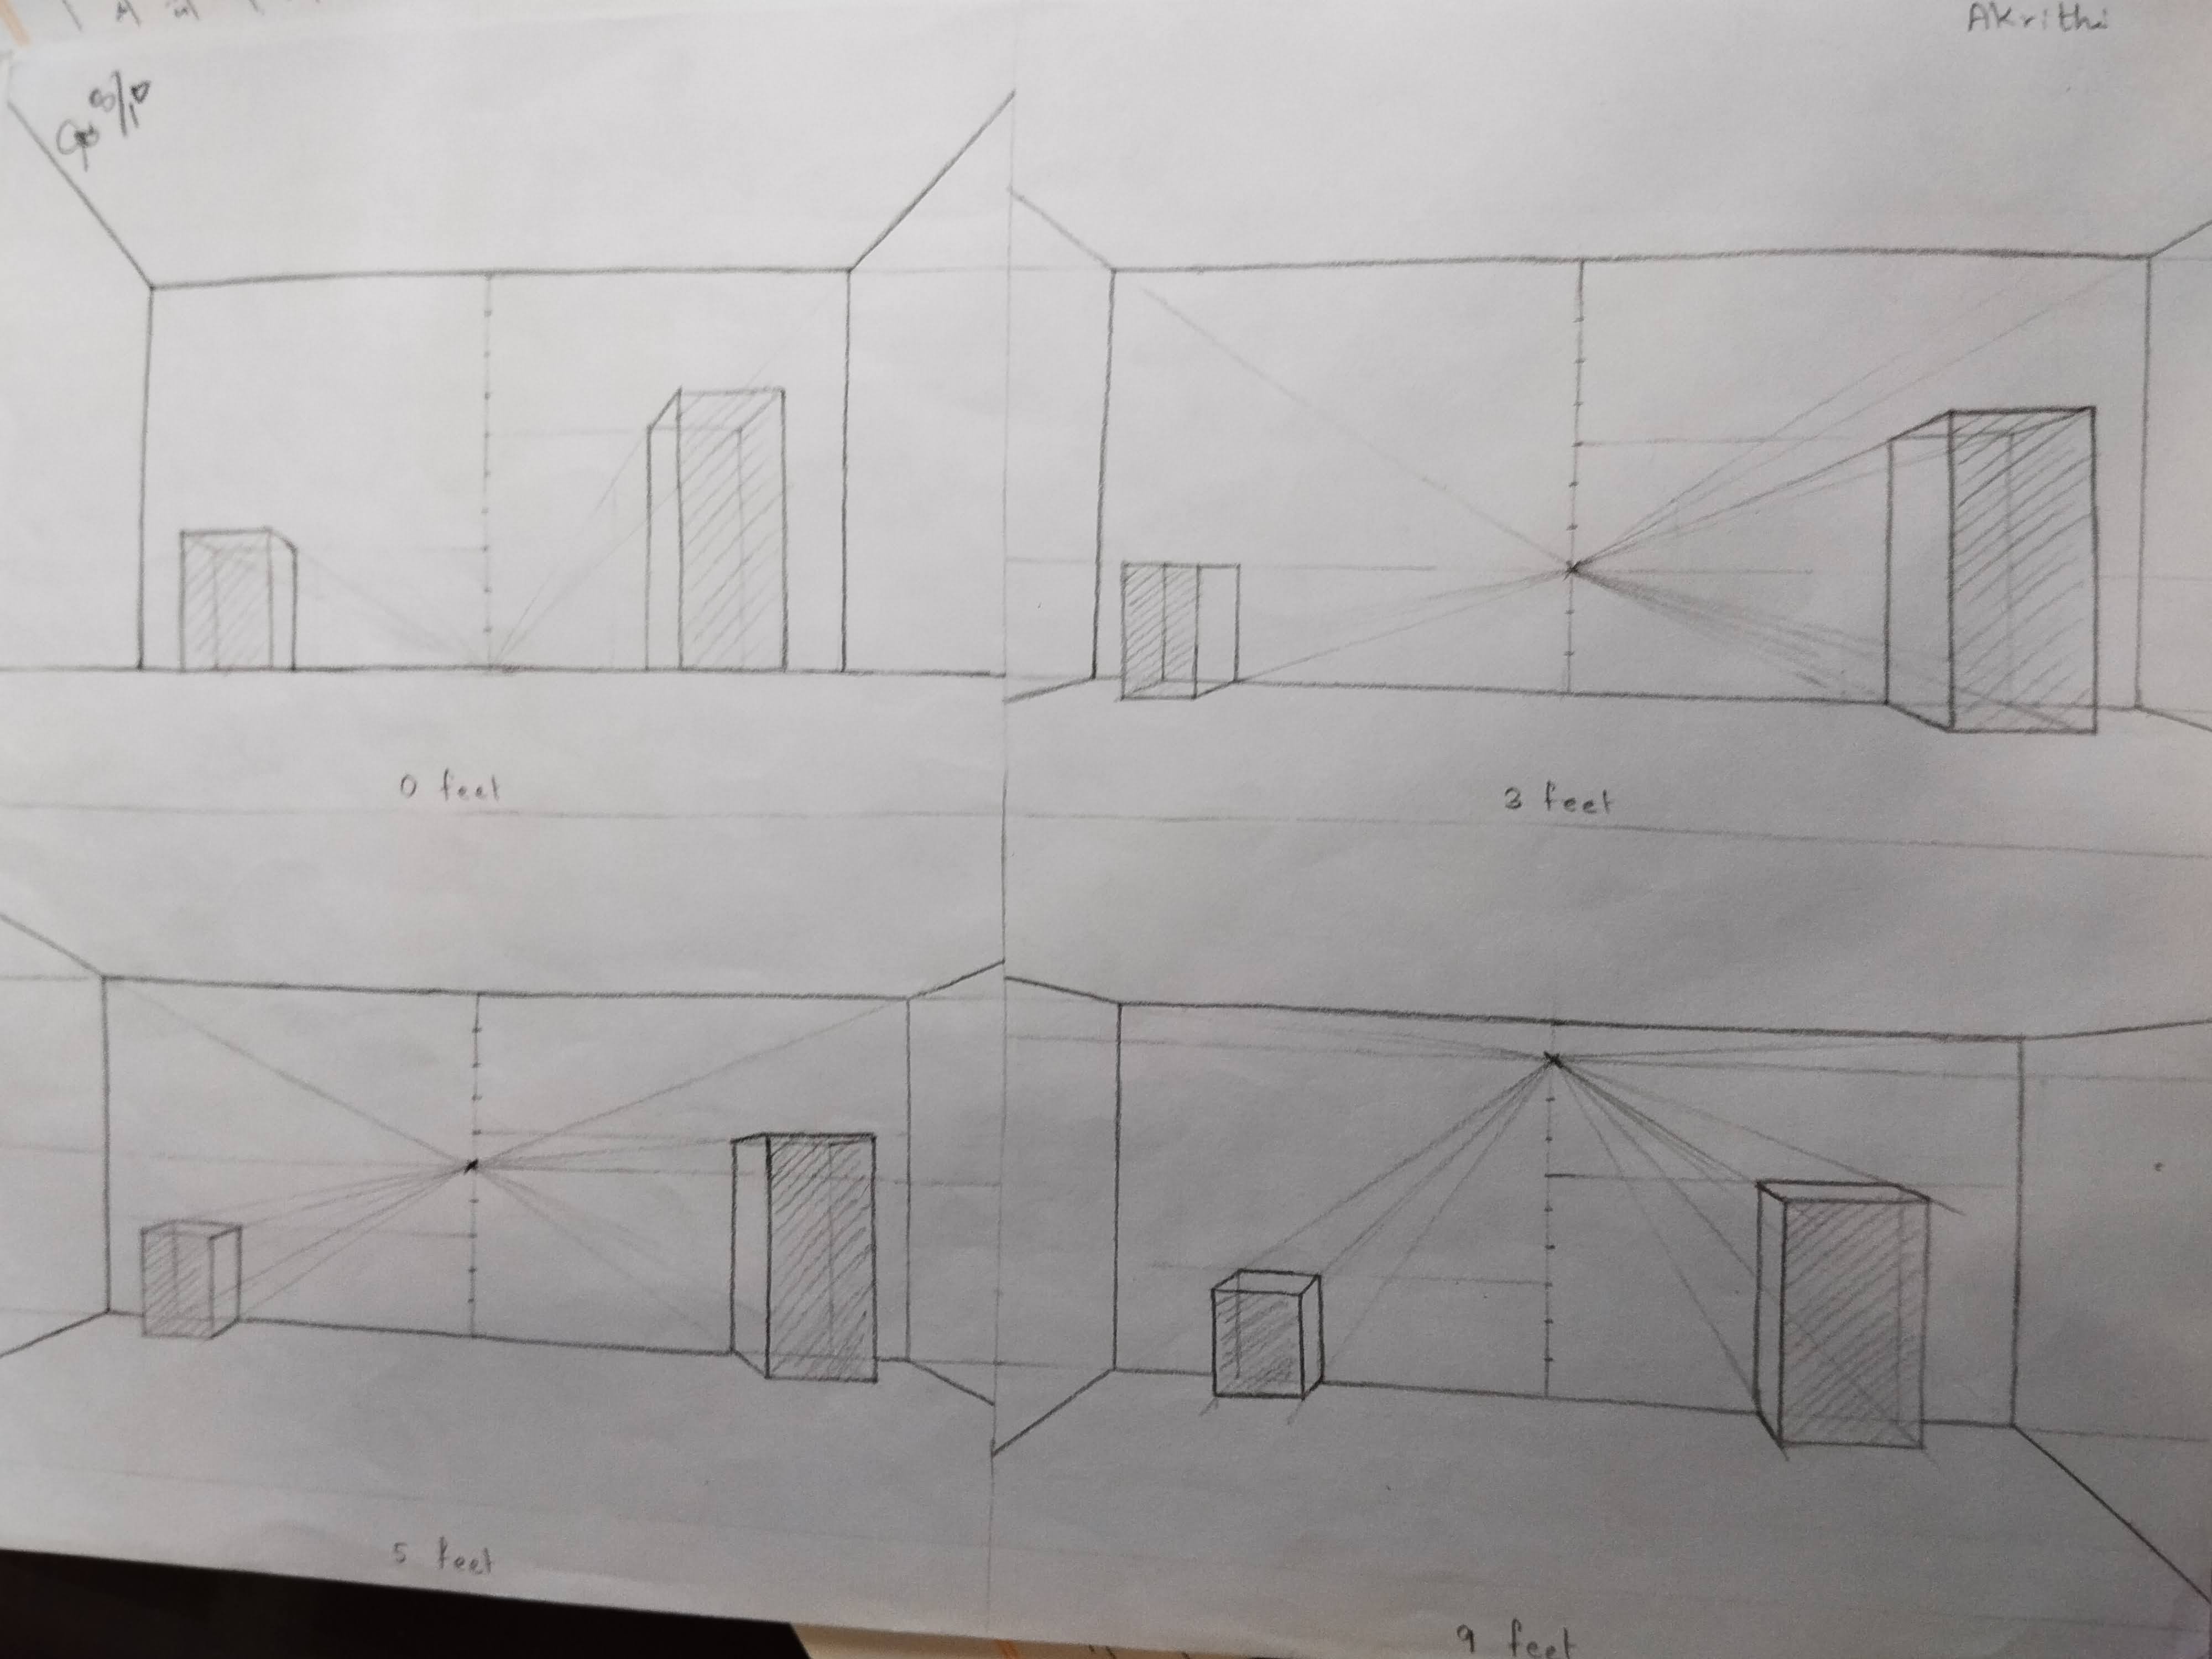 Akrithi
8/10
0 feet
3 feet
5 feet
9 feet